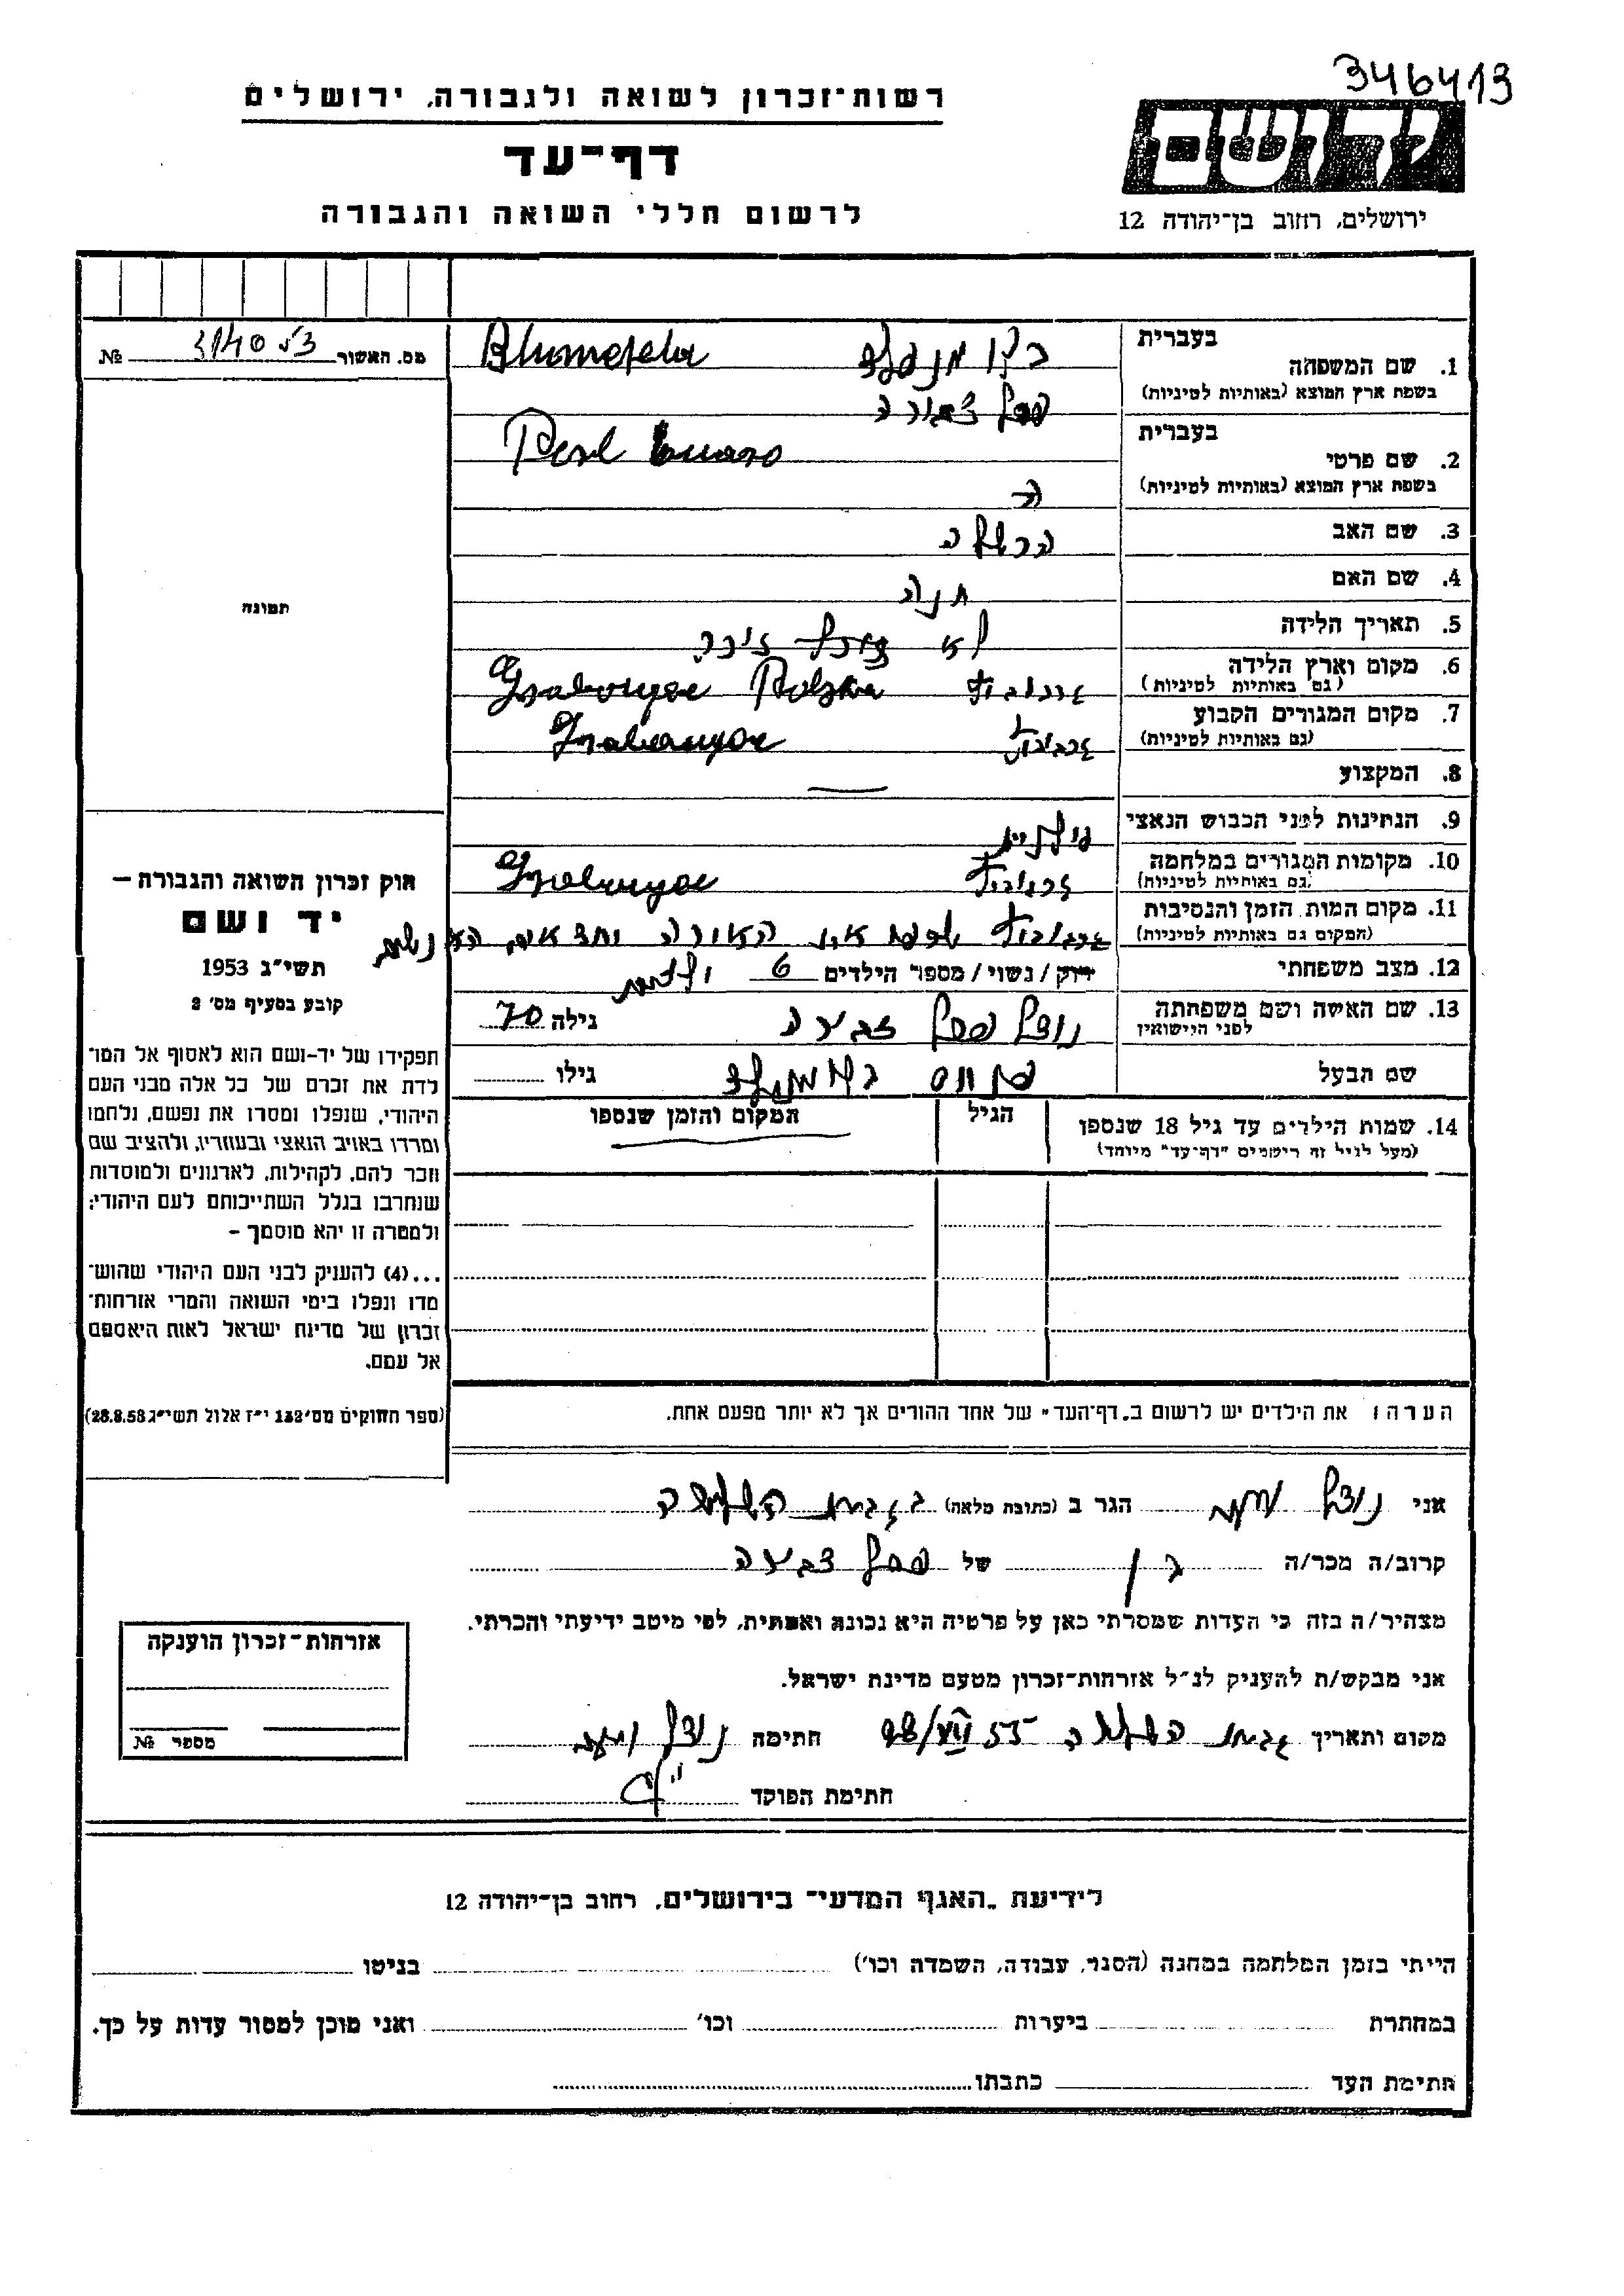 346413
רשות-זכרון לשואה ולגבורה, ירושלים
דף-עד
לרשום חללי השואה והגבורה
ירושלים, רחוב בן-יהודה 12
מס. האשור 3140 №
בעברית
1. שם המשפחה Blumefeld
בשפת ארץ המוצא (באותיות לטיניות)
בעברית
2. שם פרטי Perl
בשפת ארץ המוצא (באותיות לטיניות)
3. שם האב
4. שם האם חנה
5. תאריך הלידה לא זוכר
6. מקום וארץ הלידה Polska
(גם באותיות לטיניות)
7. מקום המגורים הקבוע
(גם באותיות לטיניות)
8. המקצוע
9. הנתינות לפני הכבוש הנאצי
10. מקומות המגורים במלחמה
(גם באותיות לטיניות)
11. מקום המות, הזמן והנסיבות
(המקום גם באותיות לטיניות)
12. מצב משפחתי רוק/נשוי/מספר הילדים 6 ילדים
13. שם האשה ושם משפחתה גילה 70
לפני הנישואין
שם הבעל גילו
14. שמות הילדים עד גיל 18 שנספו הגיל המקום והזמן שנספו
(מעל לגיל זה רישמים "דף-עד" מיוחד)
תמונה
חוק זכרון השואה והגבורה –
יד ושם
תשי"ג 1953
קובע בסעיף מס' 2
תפקידו של יד-ושם הוא לאסוף אל המו-
לדת את זכרם של כל אלה מבני העם
היהודי, שנפלו ומסרו את נפשם, נלחמו
ומרדו באויב הנאצי ובעוזריו, ולהציב שם
וזכר להם, לקהילות, לארגונים ולמוסדות
שנחרבו בגלל השתייכותם לעם היהודי;
ולמטרה זו יהא מוסמך –
...(4) להעניק לבני העם היהודי שהוש-
מדו ונפלו בימי השואה והמרי אזרחות-
זכרון של מדינת ישראל לאות היאספם
אל עמם.
(ספר החוקים מס' 132 י"ז אלול תשי"ג 28.8.53)
הערה: את הילדים יש לרשום ב"דף-העד" של אחד ההורים אך לא יותר מפעם אחת.
אני הגר ב (כתובת מלאה) גבעת השלושה
קרוב/ה מכר/ה בן של
מצהיר/ה בזה כי העדות שמסרתי כאן על פרטיה היא נכונה ואמתית, לפי מיטב ידיעתי והכרתי.
אני מבקש/ת להעניק לנ"ל אזרחות-זכרון מטעם מדינת ישראל.
מקום ותאריך גבעת השלושה 28/VII 55 חתימה
חתימת הפוקד
אזרחות-זכרון הוענקה
מספר №
לידיעת "האגף המדעי" בירושלים, רחוב בן-יהודה 12
הייתי בזמן המלחמה במחנה (הסגר, עבודה, השמדה וכו') בגיטו
במחתרת ביערות וכו' ואני מוכן למסור עדות על כך.
חתימת העד כתבתו